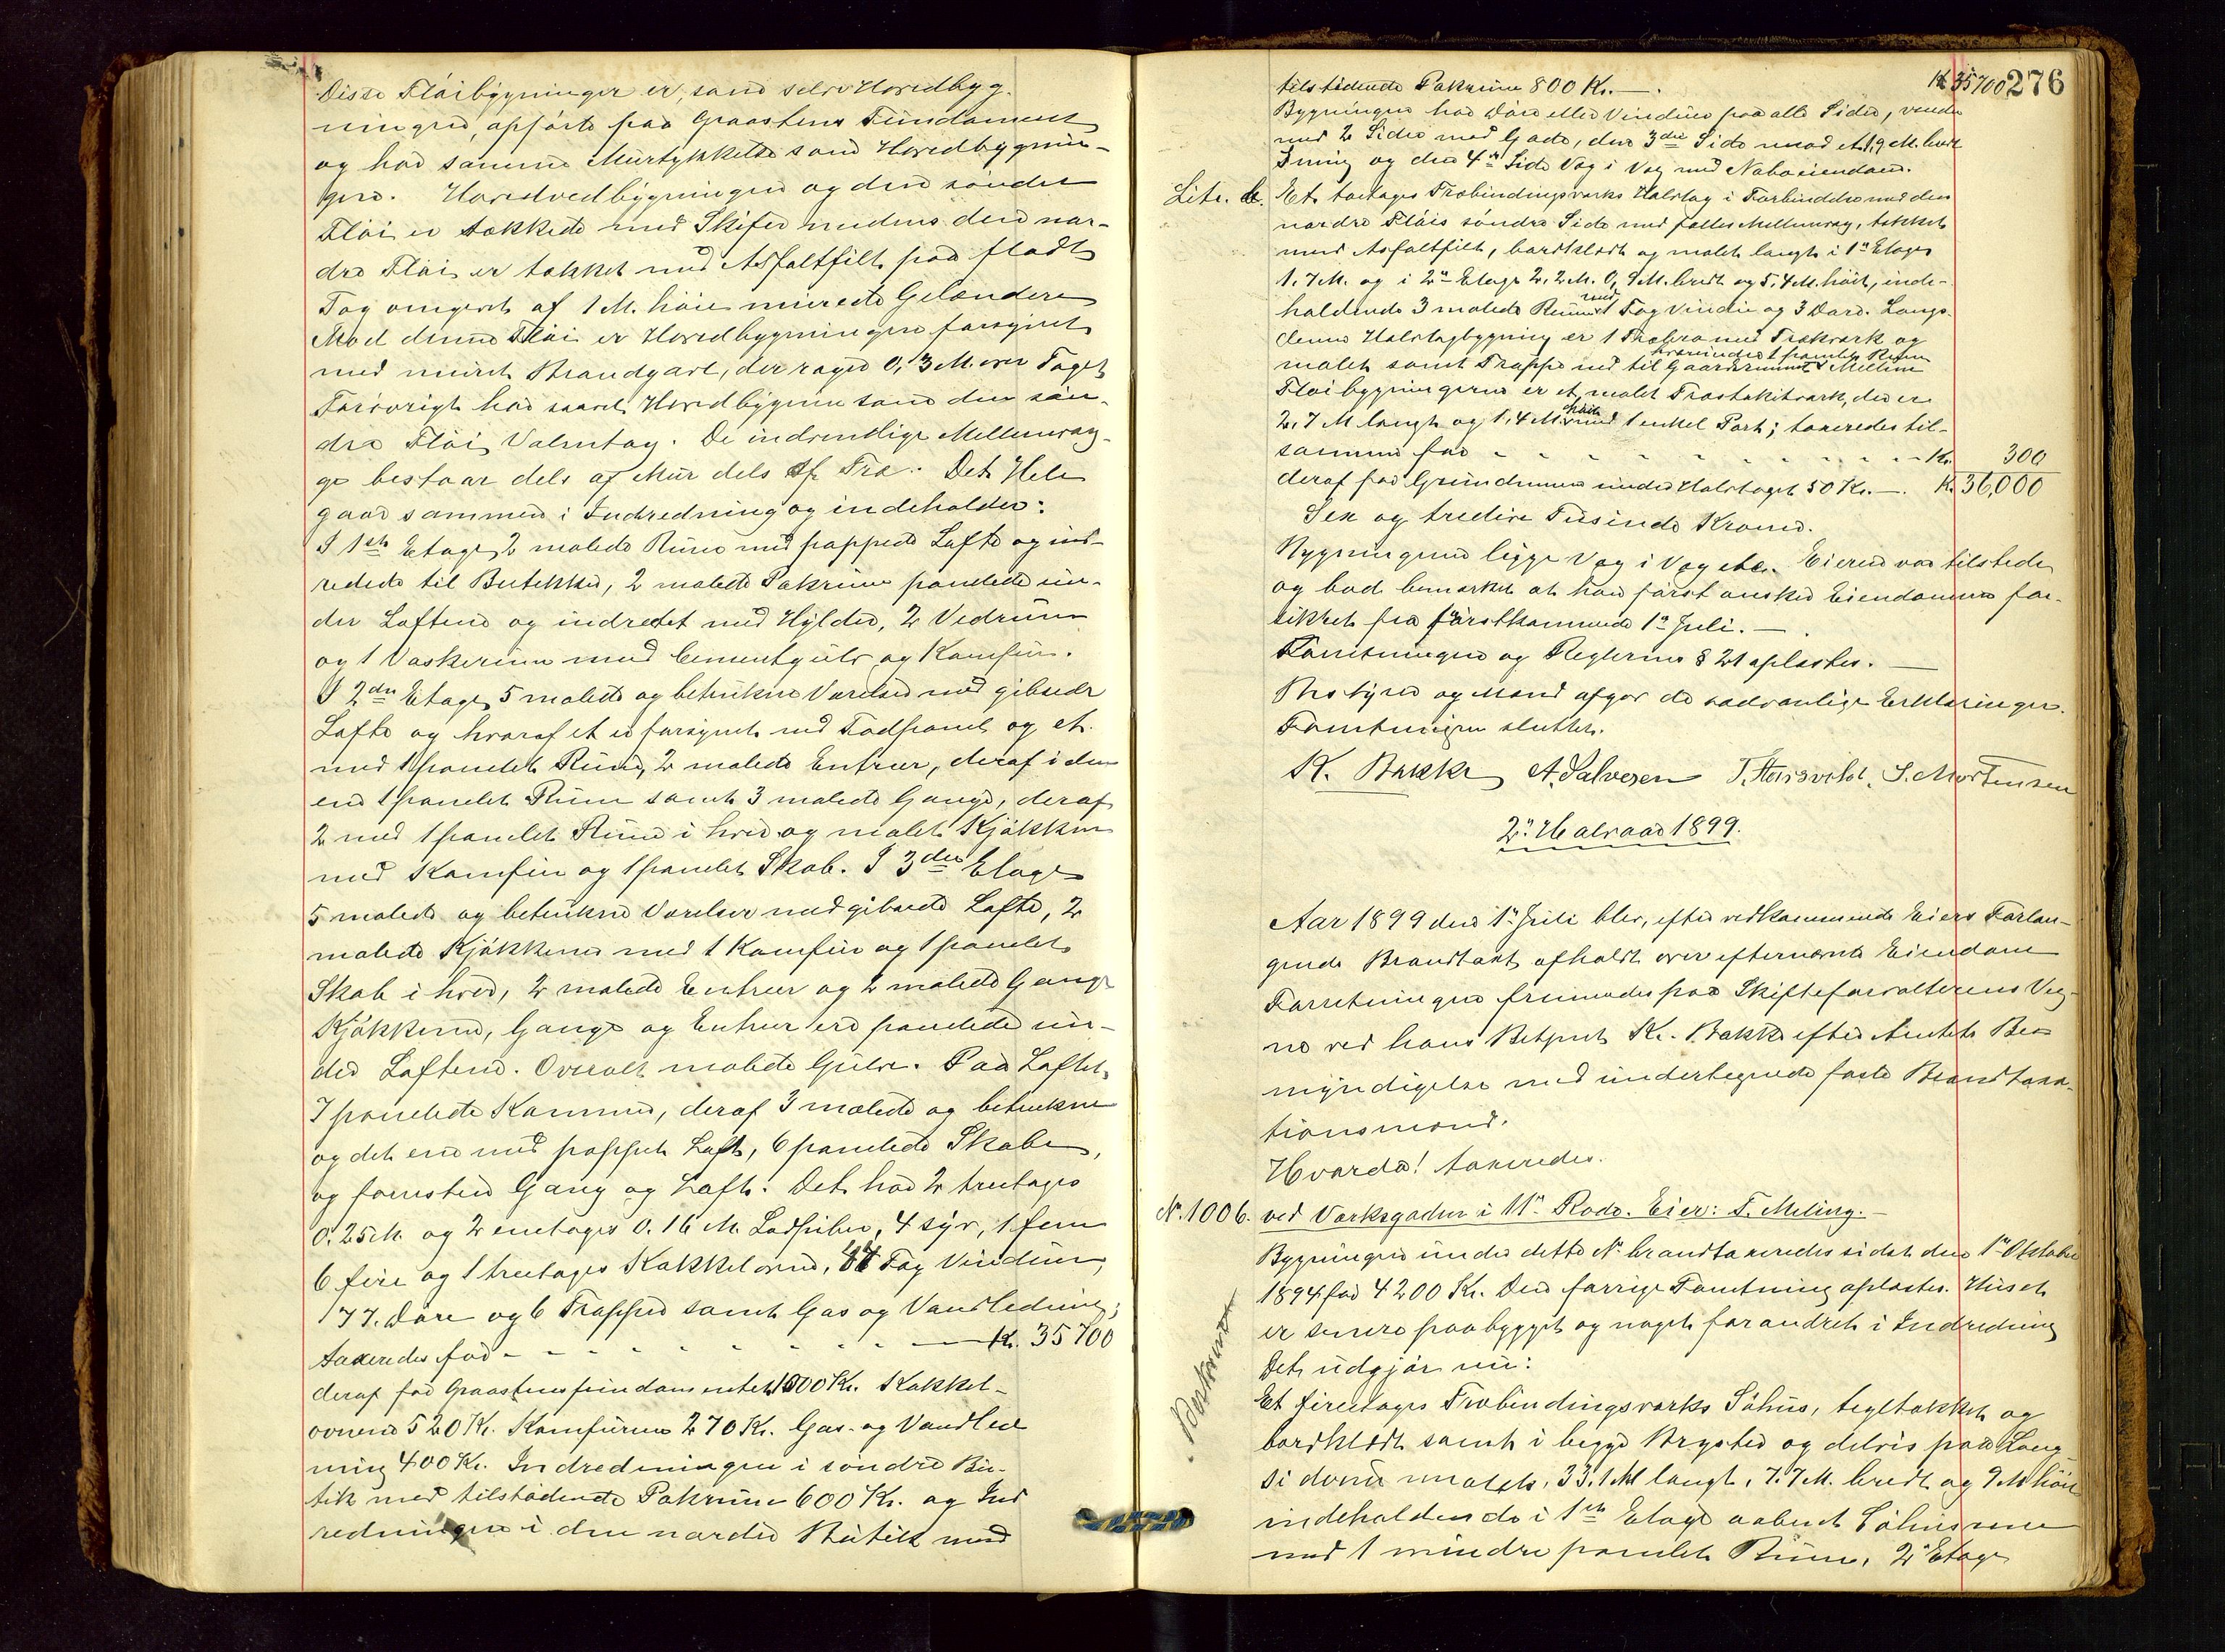 Disse Fløibygninger er, som selve Hovedbyg-
ningen, opførte paa Graastens Fundament
og har samme Murtykkelse som Hovedbygnin-
gen. Hovedvedbygningen og den søndre
Fløi er tækkede med Skifer medens den nor-
dre Fløi er tækket med Asfaltfilt paa fladt
Tag omgivet af 1 M. høie murede Gelændere
Mod denne Fløi er Hovedbygningen forsynet
med muret Brandgavl, der rager 0,3 M. over Taget
Forøvrigt har saavel Hovedbygnin som den søn-
dre Fløi Valmtag. De indvendlige Mellemvæg-
ge bestaar dels af Mur dels af Træ. Det Hele
gaar sammen i Indredning og indeholder:
I 1ste Etage 2 malede Rum med pappede Lofte og ind-
redede til Butikker, 2 malede Pakrum panelede un-
der Loftene og indredet med Hylder, 2 Vedrum
og 1 Vaskerum med Cementgulv og Komfur.
I 2den Etage 5 malede og betrukne Værelser med gibsede
Lofte og hvoraf et er forsynet med Fodpanel og et
med 1 panelet Rum, 2 malede Entreer, deraf i den
ene 1 panelet Rum samt 3 malede Gange, deraf
2 med 1 panelet Rum i hver og malet Kjøkken
med Komfur og 1 panelet Skab. I 3die Etage
5 malede og betrukne Værelser med gibsede Lofte, 2
malede Kjøkkener med 1 Komfur og 1 panelet
Skab i hver, 2 malede Entreer og 2 malede Gange
Kjøkkener, Gange og Entreer ere panelede un-
der Loftene. Overalt malede Gulve. Paa Loftet
7 panelede Kammer, deraf 3 malede og betrukne
og det ene med pappet Loft, 6 panelede Skabe,
og fornøden Gang og Loft. Det har 2 treetages
0.25 M. og 2 enetages 0.16 M. Lodpiber, 4 syv, 1 fem
6 fire og 1 treetages Kakkelovne, 44 Fag Vinduer,
77. Døre og 6 Trapper samt Gas og Vandledning;
taxeredes for - - - - - - - - Kr. 35700
deraf for Graastensfundamentet 1000 Kr. Kakkel-
ovnene 520 Kr. Komfurene 270 Kr. Gas- og Vandled
ning 400 Kr. Indredningen i søndre Bu-
tik med tilstødende Pakrum 600 Kr. og Ind
redningen i den nordre Butik med
Kr 35700 276
tilstødende Pakrum 800 Kr. —.
Bygningen har Døre eller Vinduer paa alle Sider, vender
med 2 Sider mod Gade, den 3die Side mod et 1,9 M. bredt
Smug og den 4de Side Væg i Væg med Naboeiendom.
Litr. b. Et toetages Træbindingsværks Halvtag i Forbindelse med den
nordre Fløis søndre Side med fælles Mellemvæg, tækket
med Asfaltfilt, bordklædt og malet langt i 1ste Etage
1.7 M. og i 2den Etage 2,2 M. 0,9 M. bredt og 5,4 M. høit, inde-
holdende 3 malede Rum med 1 Fag Vindu og 3 Døre. Langs
denne Halvtagbygning er 1 Træbro med Rækværk og
malet samt Trappe ned til Gaardsrummet hvorunder 1 panelet Rum Mellem
Fløibygningerne er et malet Træstakitværk, der er
2,7 M langt og 1,4 M. høit med 1 enkel Port; taxeredes til-
sammen for - - - - - - - - Kr. 300
deraf for Grundmuren under Halvtaget 50 Kr. —. Kr. 36,000
Sex og tredive Tusinde Kroner.
Bygningerne ligge Væg i Væg etc. Eieren var tilstede
og bad bemærket at han først ønsker Eiendommen for-
sikret fra førstkommende 1ste Juli. —.
Forretningen og Reglernes § 21 oplæstes. —
Bestyrer og Mænd afgav de sædvanlige Erklæringer.
Forretningen sluttet.
K. Bakke A. Salvesen T. Haisveldt. S. Mortensen
2det Halvaar 1899.
Aar 1899 den 1ste Juli blev, efter vedkommende Eiers Forlan-
gende Brandtaxt afholdt over efternævnte Eiendom
Forretningen fremmedes paa Skifteforvalterens Veg-
ne ved hans Betjent Kr. Bakke efter Amtets Be-
myndigelse med undertegnede faste Brandtaxa-
tionsmænd.
Hvorda! taxeredes.
No. 1006. ved Værksgaden i 11te Rode. Eier: T. Meling. —
Bygningen under dette No brandtaxeredes sidst den 1ste Oktober
1894 for 4200 Kr. Den forrige Forretning oplæstes. Huset
er senere paabygget og noget forandret i Indredning
Det udgjør nu:
Bortkommet
Et fireetages Træbindingsværks Søhus, tegltækket og
bordklædt samt i begge Bryster og delvis paa Lang
siderne malet, 33,1 M langt, 7.7 M. bredt og 9 M. høit
indeholdende i 1ste Etage aabent Søhusrum
med 1 mindre panelet Rum, 2den Etage